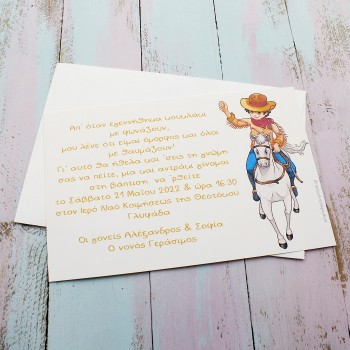 Απ' όταν εγεννήθηκα κουκλάκι
με φωνάζουν,
μου λένε ότι είμαι όμορφος και όλοι
με θαυμάζουν!
Γι' αυτό θα ήθελα και 'σεις τη γνώμη
σας να πείτε, μια και αντράκι γίνομαι
στη βάπτιση να 'ρθείτε
το Σάββατο 21 Μαΐου 2022 & ώρα 16:30
στον Ιερό Ναό Κοιμήσεως της Θεοτόκου
Γλυφάδα
Οι γονείς Αλέξανδρος & Σοφία
Ο νονός Γεράσιμος